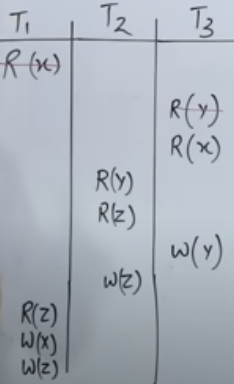 T₁ T₂ T₃
R(x)
R(y)
R(x)
R(y)
R(z)
W(y)
W(z)
R(z)
W(x)
W(z)